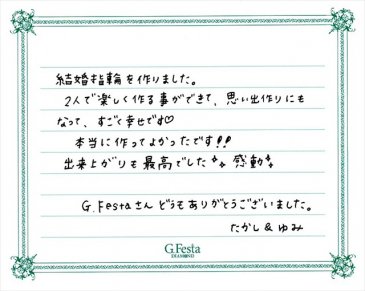 結婚指輪を作りました。
2人で楽しく作る事ができて、思い出作りにも
なって、すごく幸せです♡
本当に作ってよかったです!!
出来上がりも最高でした✨感動✨
G.Festaさんどうもありがとうございました。
たかし&ゆみ
G.Festa
DIAMOND